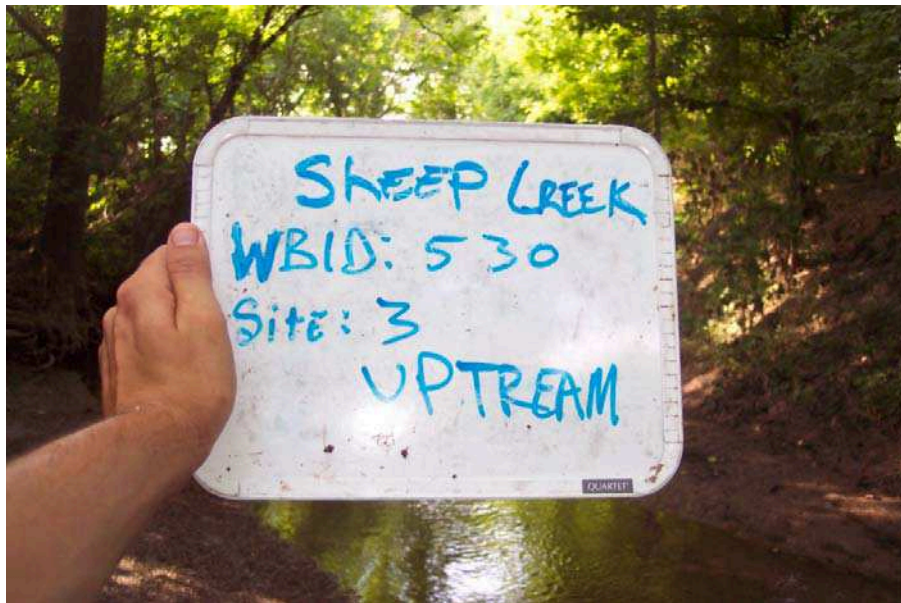 SHEEP CREEK
WBID: 530
Site: 3
UPTREAM
QUARTET